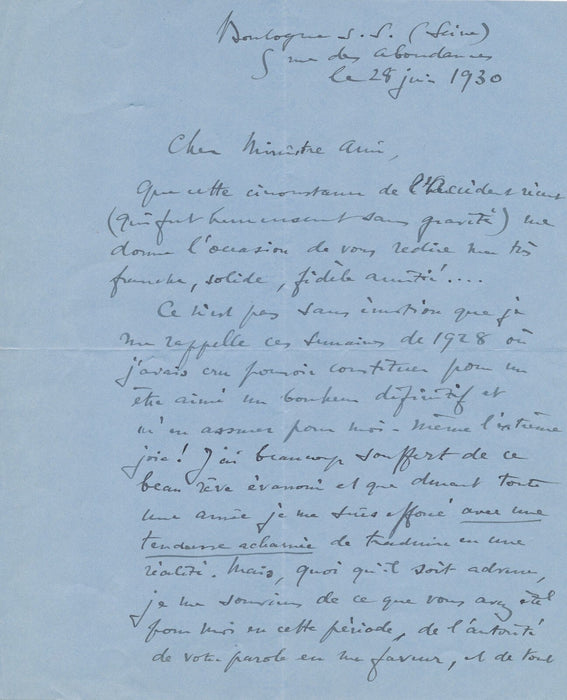 Boulogne s. S. (Seine)
5 rue des Abondances
le 28 juin 1930
Cher Ministre Ami,
Que cette circonstance de l'Accident récent
(qui fut heureusement sans gravité) me
donne l'occasion de vous redire ma très
franche, solide, fidèle amitié....
Ce n'est pas sans émotion que je
me rappelle ces semaines de 1928 où
j'avais cru pouvoir constituer pour un
être aimé un bonheur définitif et
m'en assurer pour moi-même l'extrême
joie! J'ai beaucoup souffert de ce
beau rêve évanoui et que durant toute
une année je me suis efforcé avec une
tendresse acharnée de traduire en une
réalité. Mais, quoi qu'il soit advenu,
je me souviens de ce que vous avez été
pour moi en cette période, de l'autorité
de votre parole en ma faveur, et de tout